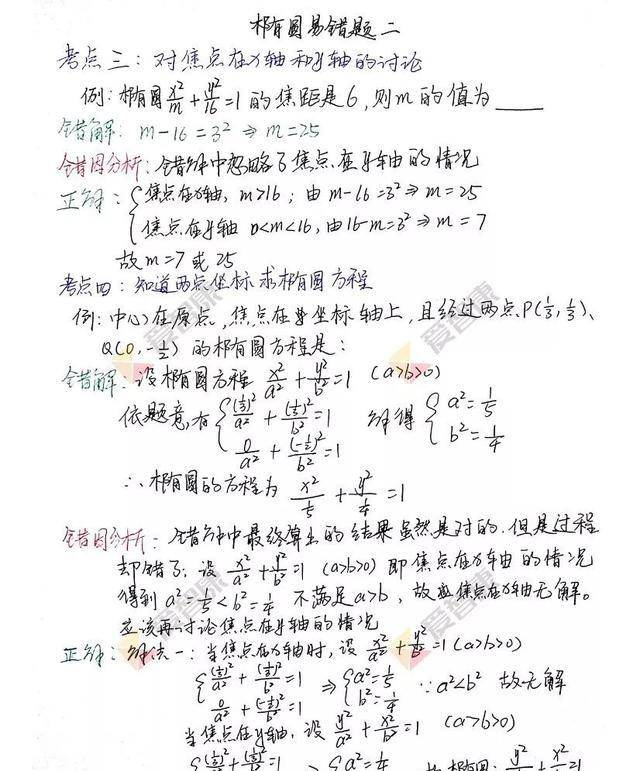 椭圆易错题二
考点三:对焦点在x轴和y轴的讨论
例:椭圆x²/m+y²/16=1的焦距是6,则m的值为____
错解:m-16=3²⇒m=25
错因分析:错解中忽略了焦点在y轴的情况
正解:{焦点在x轴,m>16;由m-16=3²⇒m=25
焦点在y轴 0<m<16,由16-m=3²⇒m=7
故m=7或25
考点四:知道两点坐标求椭圆方程
例:中心在原点,焦点在坐标轴上,且经过两点P(1/3,1/3)、
Q(0,-1/2)的椭圆方程是:
错解:设椭圆方程 x²/a²+y²/b²=1 (a>b>0)
依题意,有{(1/3)²/a²+(1/3)²/b²=1
0/a²+(-1/2)²/b²=1 解得{a²=1/5
b²=1/4
∴椭圆的方程为 x²/(1/5)+y²/(1/4)=1
错因分析:错解中最终算出的结果虽然是对的,但是过程
却错了;设 x²/a²+y²/b²=1 (a>b>0)即焦点在x轴的情况
得到a²=1/5<b²=1/4 不满足a>b,故应焦点在x轴无解。
应该再讨论焦点在y轴的情况
正解:解法一:当焦点在x轴时,设x²/a²+y²/b²=1(a>b>0)
{(1/3)²/a²+(1/3)²/b²=1
0/a²+(-1/2)²/b²=1 ⇒{a²=1/5
b²=1/4 ∵a²<b² 故无解
当焦点在y轴,设y²/a²+x²/b²=1 (a>b>0)
{(1/3)²/a²+(1/3)²/b²=1 ⇒{a²=1/4
爱智康
爱智康
爱智康
爱智康